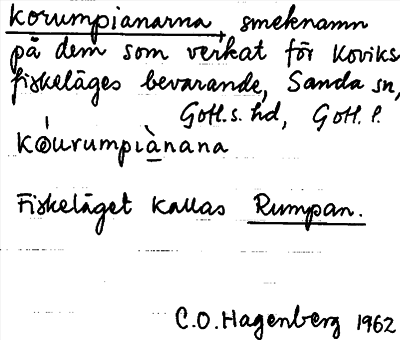 korumpianarna, smeknamn
på dem som verkat för Koviks
fiskeläges bevarande, Sanda sn,
Gotl. s. hd, Gotl. l.
kóurumpiànana
Fiskeläget kallas Rumpan.
C.O. Hagenberg 1962